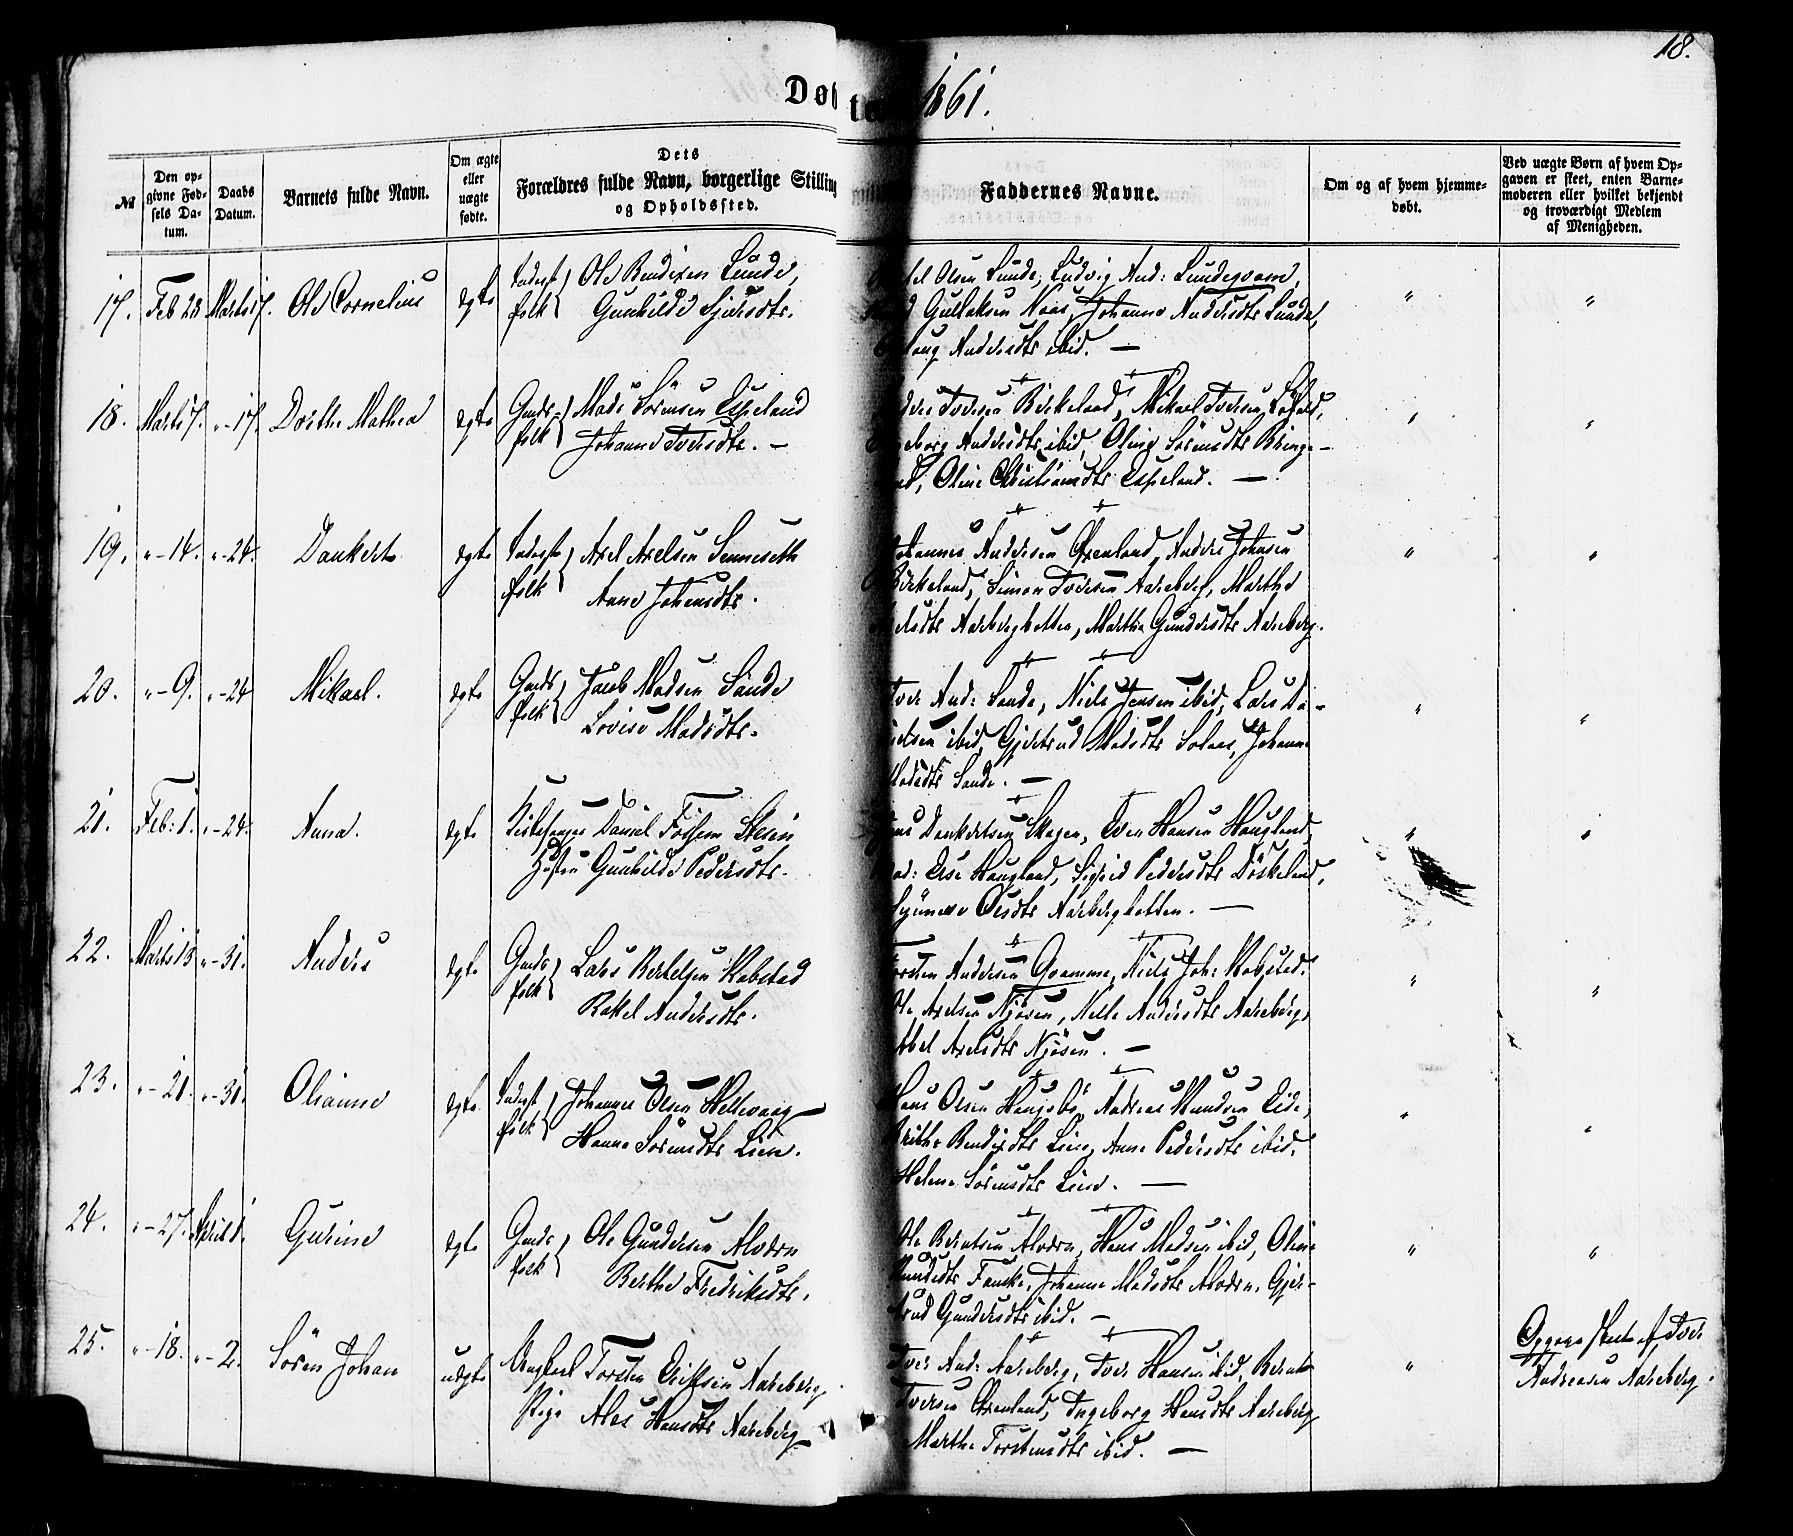 18.
Døb te 1861.
№
Den opgivne Fødsels Datum.
Daabs Datum.
Barnets fulde Navn.
Om ægte eller uægte fødte.
Dets Forældres fulde Navn, borgerlige Stilling og Opholdssted.
Faddernes Navne.
Om og af hvem hjemmedøbt.
Ved uægte Børn af hvem Opgaven er skeet, enten Barnemoderen eller hvilket bekjendt og troværdigt Medlem af Menigheden.
17. Feb 23 Marts 17. Ole Cornelius ægte Inderst folk Ole Bendixen Lunde,
Gunhilde Sjursdtr.
Olsen Lunde, Ludvig And: Lundeqvam,
Gullaksen Naas, Johanne Andersdtr Lunde,
Andersdtr ibid. —
" "
18. Marts 7. "-17. Dorthe Mathea ægte Gaards folk Mads Sörensen Espeland
Johanne Iversdtr. -
Iversen Birkeland, Mikael Iversen
Andersdtr ibid, Oline Sörensdtr Bringe-
Oline Christiansdtr Espeland. —
" "
19. "-14. "-24. Dankert ægte Inderste folk Axel Axelsen Senneseth
Anne Johansdtr.
Johannes Andersen Øxenland, Anders Johnsen
Birkeland, Simon Iversen Aareberg, Marthe
Aarbergbotten, Marthe Gundersdtr Aareberg.
" "
20. "-9. "-24 Mikael. ægte Gaards folk Jacob Madsen Sande
Lovise Madsdtr.
Iver And: Sande, Niels Jensen ibid, Lars Da-
nielsen ibid, Gjertrud Madsdtr Solaas, Johanne
Madsdtr Sande. —
" "
21. Feb: 1. "-24. Anna. ægte Kirkesanger Daniel Stein
Hustru Gunhilde Pedersdtr.
Dankertsen Skagen, Even Hansen Haugland,
Haugland, Sigrid Pedersdtr Döskeland,
Synneve Olsdtr Aarbergbotten. —
" "
22. Marts 13 "-31. Anders ægte Gaards folk Lars Bertelsen Stabstad
Rakel Andersdtr.
Torsten Andersen Qvamme, Niels Joh: Stabstad.
Ole Axelsen Njösen, Nelle Andersdtr Aareberg,
Abel Axelsdtr Njösen. —
" "
23. "-21. "-31. Olianne ægte Inderst folk Johannes Olsen Hellevaag
Hanne Sörensdtr Lien.
Hans Olsen Andreas Knudsen Eide,
Brithe Bendixdtr Lien, Anne Pedersdtr ibid.
Helene Sörensdtr Lien. —
" "
24. "-27. April 1. Gurine ægte Gaards folk Ole Gundersen Alvdrn
Berthe Fredriksdtr.
Ole Berntsen Alvdrn, Hans Madsen ibid, Oline
Knudsdtr Fauske, Johanne Madsdtr Alvdrn, Gjer-
trud Gundersdtr ibid. —
" "
25. "-18. "-2. Sören Johan uægte Ungkarl Torsten Eriksen Aareberg
Pige Ales Hansdtr Aareberg
Iver And: Aareberg, Iver Hansen ibid, Bernt
Iversen Øxenland, Ingeborg Hansdtr Aareberg
Marthe Torstensdtr ibid. —
"
Opgave skeet af Iver
Andreasen Aareberg.